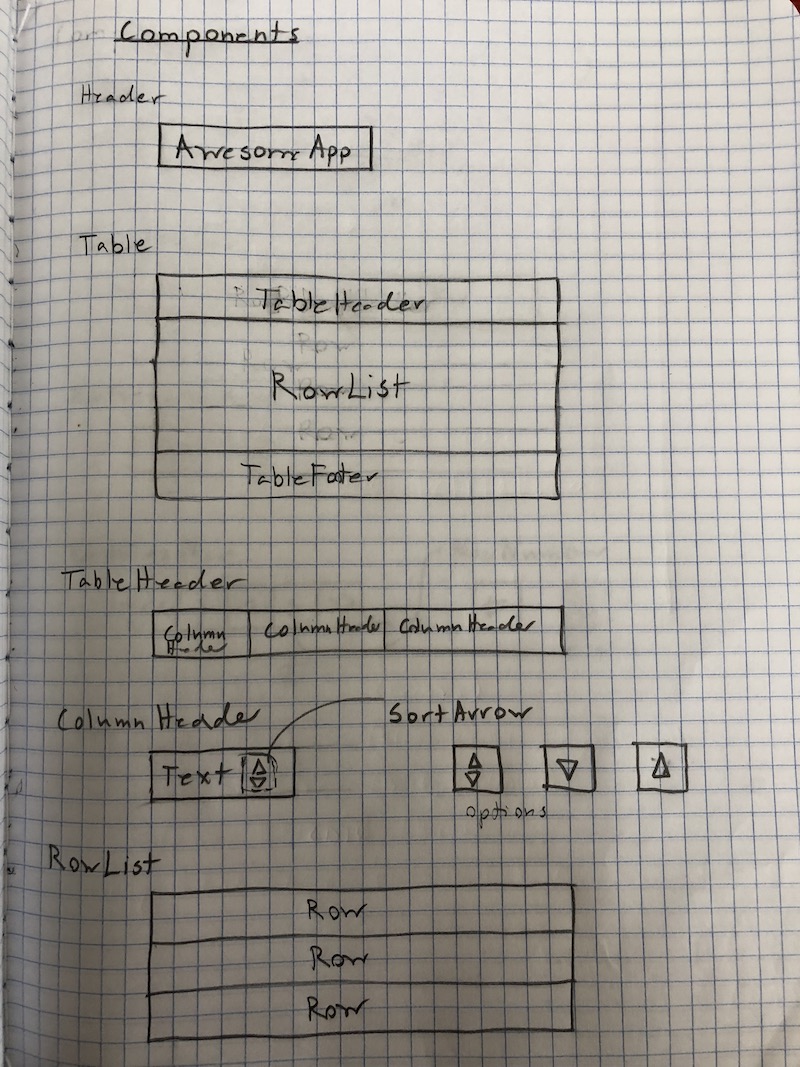 Components
Header
Awesome App
Table
TableHeader
Row
RowList
Row
TableFooter
TableHeader
Column Header
ColumnHeader
ColumnHeader
ColumnHeader
SortArrow
Text
options
RowList
Row
Row
Row